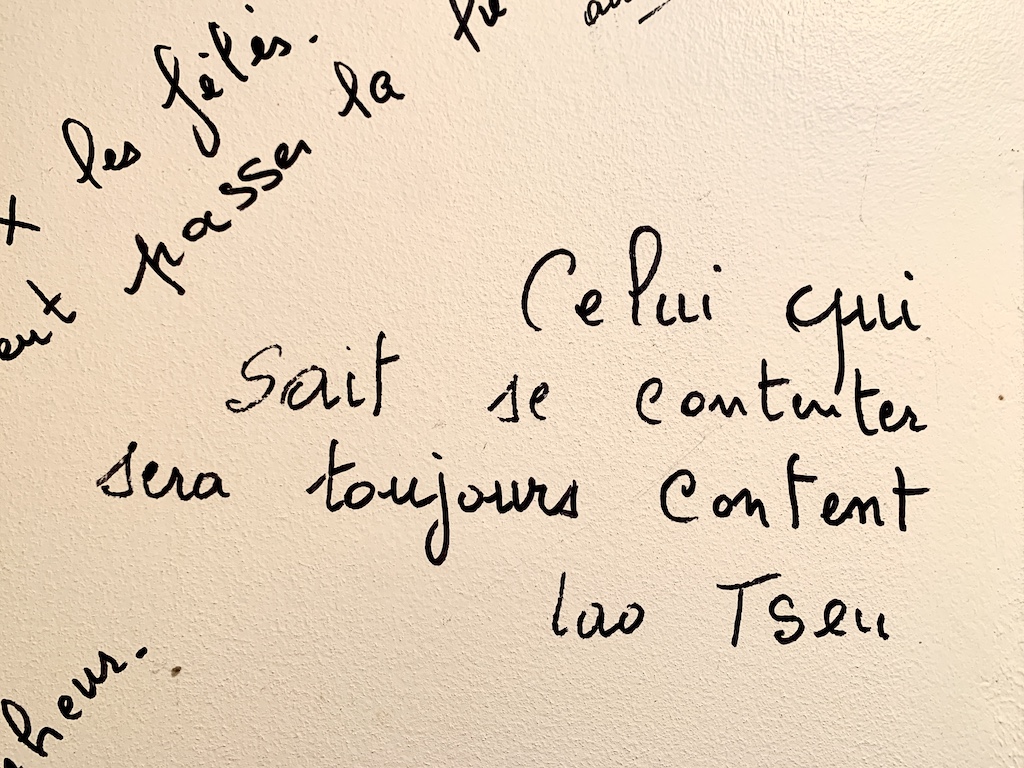 x les fêlés.
eut passer la
Celui qui
Sait se contenter
sera toujours content
lao Tseu
heur.